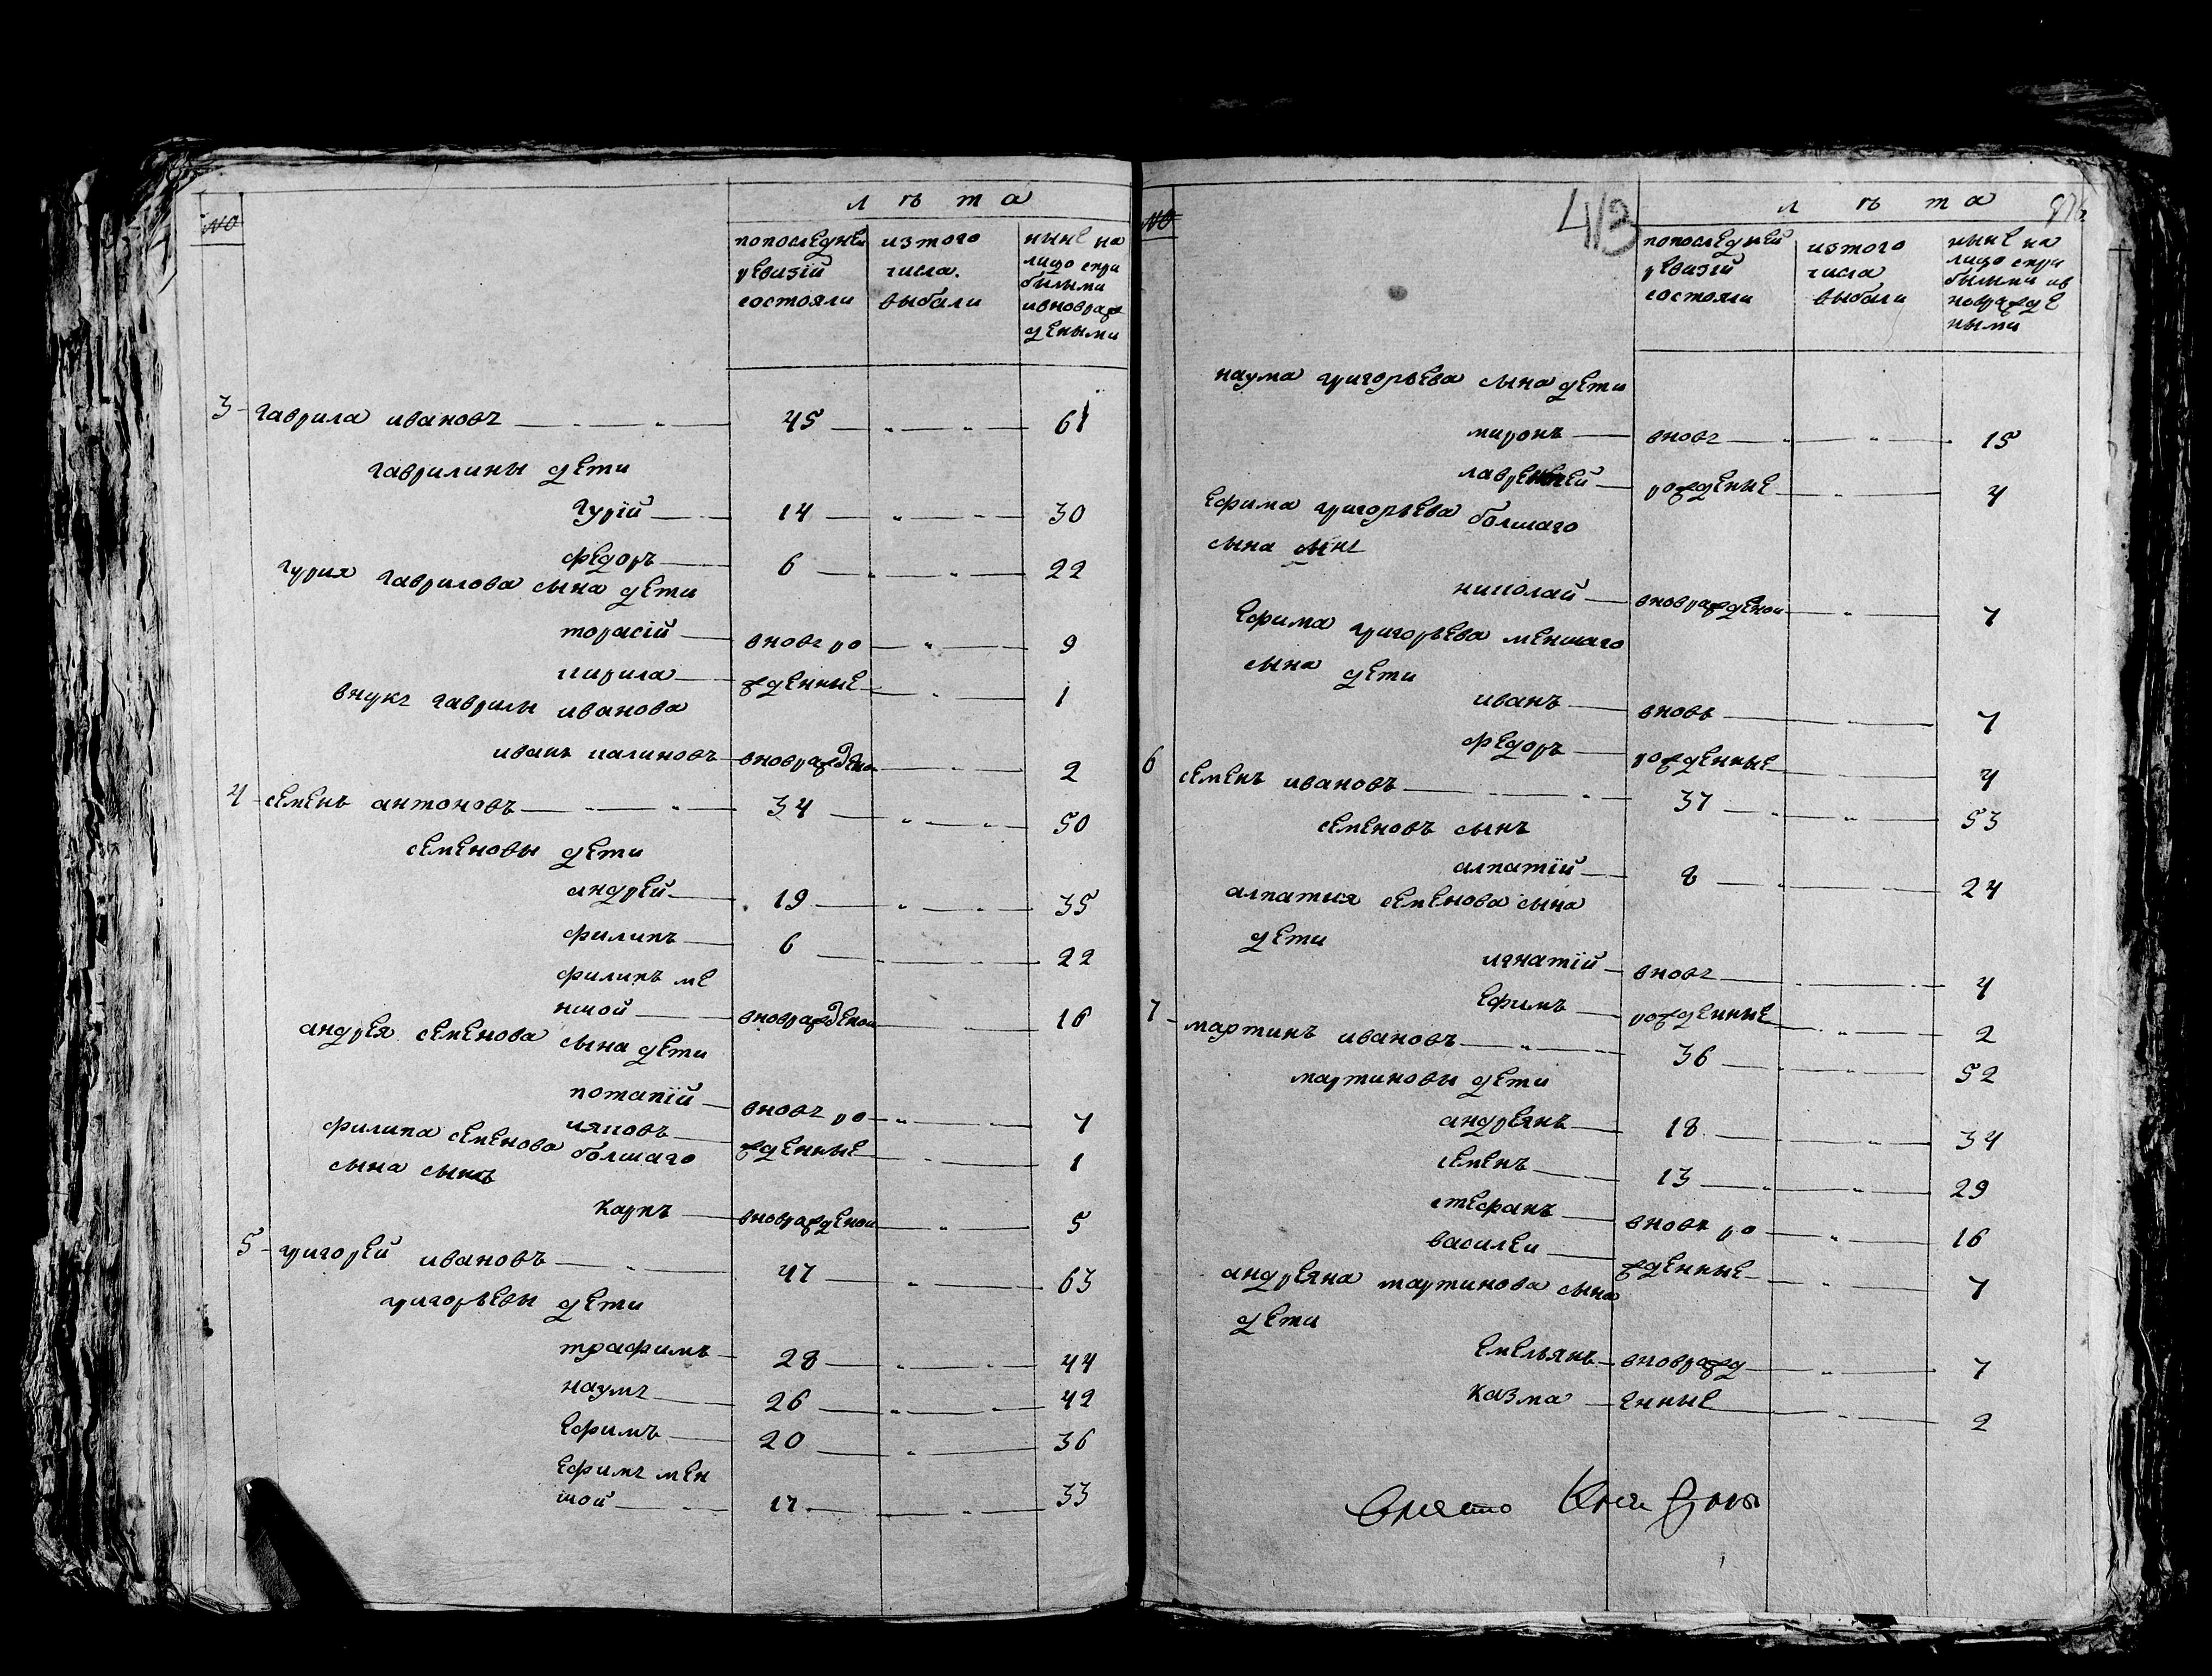 №
лѣта
попоследней изтого нынѣ на
ревизiи числа. лицо спри
состояли выбали былыми
ивновраж
деными
3 гаврила ивановъ 45 „ „ 61
гаврилины дети
гурiй 14 „ 30
федоръ 6 „ „ 22
гурия гаврилова сына дети
торасiй вновъ ро „ 9
кирила жденные „ 1
внукъ гаврилы иванова
иванъ калиновъ вновраждено 2
4 семенъ антоновъ „ 34 „ „ 50
семеновы дети
андрей 19 „ „ 35
филипъ 6 „ 22
филипъ ме
ншой вновражденои 16
андрея семенова сына дети
потапiй вновъ ро „ 7
яковъ жденные „ 1
филипа семенова болшаго
сына сынъ
карпъ вновражденои „ 5
5 григорей ивановъ „ 47 „ 63
григорьевы дети
трафимъ 28 „ „ 44
наумъ 26 „ „ 42
ефимъ 20 „ 36
ефимъ мен
шой 17 „ 33
413
№
лѣта
попоследней изтого нынѣ на
ревизiй числа лицо спри
состояли выбали былыми ив
новражде
ными
наума григорьева сына дети
миронъ вновъ „ 15
лаврентей рожденые „ 4
ефима григорьева болшаго
сына сынъ
николай вновражденои „ 7
ефима григорьева меншаго
сына дети
иванъ вновь „ 7
федоръ рожденные 4
6 семенъ ивановъ „ 37 „ „ 53
семеновъ сынъ
алпатiй 8 „ 24
алпатия семенова сына
дети
игнатiй вновъ „ 4
ефимъ рожденные „ „ 2
7 мартинъ ивановъ „ 36 „ „ 52
мартиновы дети
андреянъ 18 „ 34
семенъ 13 „ 29
стефанъ вновь ро „ 16
василеи жденные „ 7
андреяна мартинова сына
дети
емельянъ вновражд „ 7
казма енные „ 2